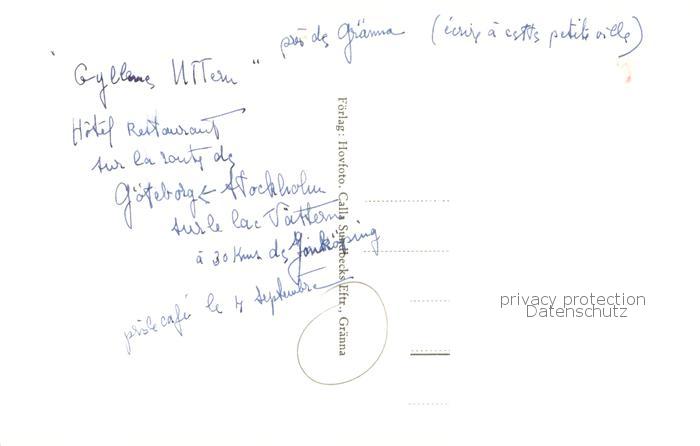 " Gyllene Uttern " près de Gränna (écrire à cette petite ville)
Hôtel Restaurant
sur la route de
Göteborg ← Stockholm
sur le lac Vättern
à 30 Kms de Jönköping
pris le café le 4 septembre
Förlag: Hovfoto, Calla Sundbecks Eftr., Gränna
privacy protection
Datenschutz